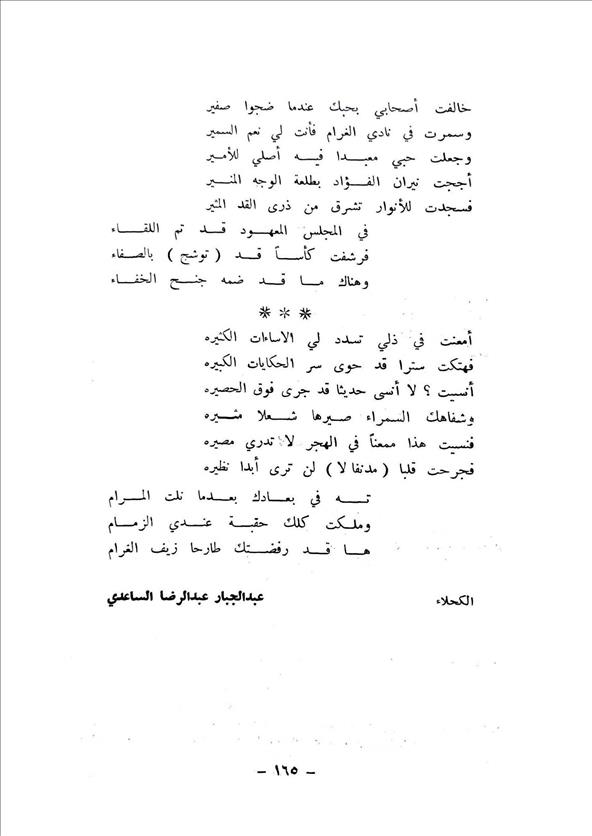 خالفت أصحابي بحبك عندما ضجوا صفير
وسمرت في نادي الغرام فأنت لي نعم السمير
وجعلت حبي معبدا فيه أصلي للأمير
أججت نيران الفؤاد بطلعة الوجه المنير
فسجدت للأنوار تشرق من ذرى القد المثير
في المجلس المعهود قد تم اللقاء
فرشفت كأساً قد ( توشج ) بالصفاء
وهناك ما قد ضمه جنح الخفاء
* * *
أمعنت في ذلي تسدد لي الاساءات الكثيره
فهتكت سترا قد حوى سر الحكايات الكبيره
أنسيت ؟ لا أنسى حديثا قد جرى فوق الحصيره
وشفاهك السمراء صيرها شعلا مثيره
فنسيت هذا ممعناً في الهجر لا تدري مصيره
فجرحت قلبا ( مدنفا لا ) لن ترى أبدا نظيره
ته في بعادك بعدما نلت المرام
وملكت كلك حقبة عندي الزمام
ها قد رفضتك طارحا زيف الغرام
الكحلاء عبدالجبار عبدالرضا الساعدي
- ١٦٥ -